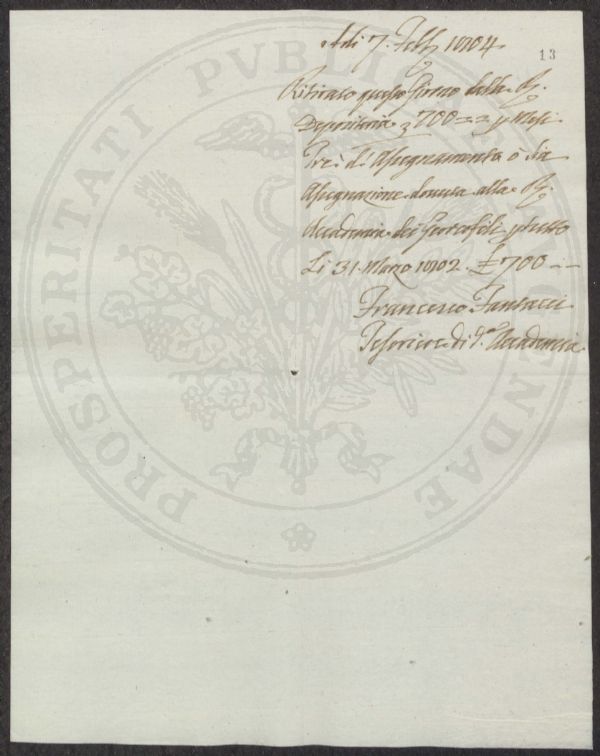 13
Adi 7. Febb. 1804
Ritirato questo Giorno dalla R.
Depositeria £ 700 == == p Mesi
Tre d' Assegnamento ò sia
Assegnazione dovuta alla R.
Accademia dei Georgofili p tutto
Li 31. Marzo 1802. £ 700 --
Francesco Fantacci
Tesoriere di d.ª Accademia
PROSPERITATI PVBLICAE AVGENDAE